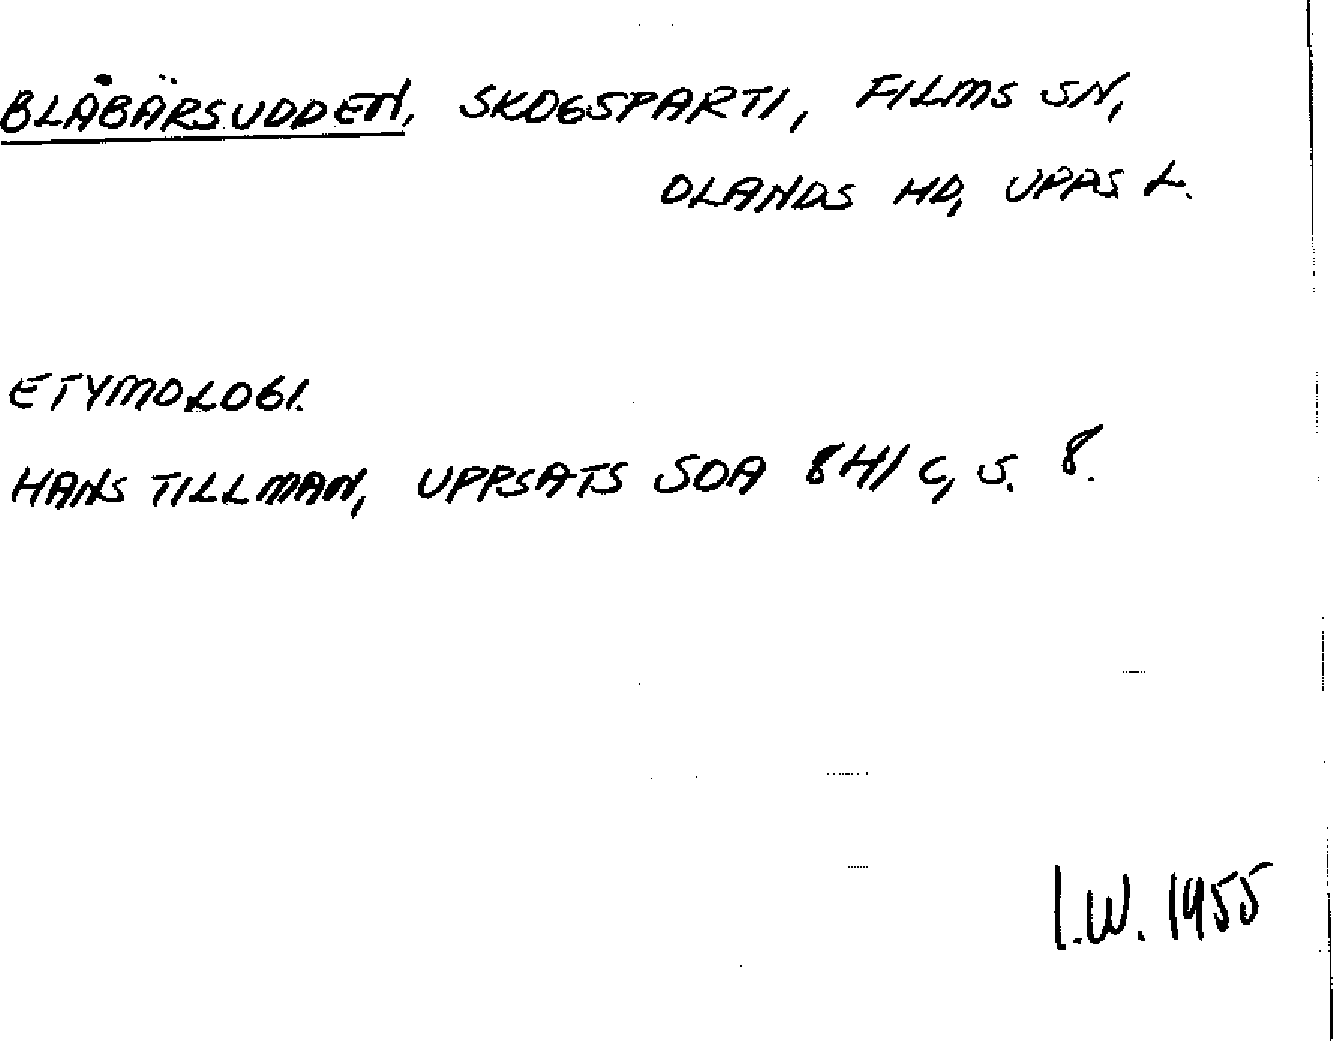 BLÅBÄRSUDDEN, SKOGSPARTI, FILMS SN,
OLANDS HD, UPPS L.
ETYMOLOGI.
HANS TILLMAN, UPPSATS SOA 841 C, S. 8.
I.W. 1955